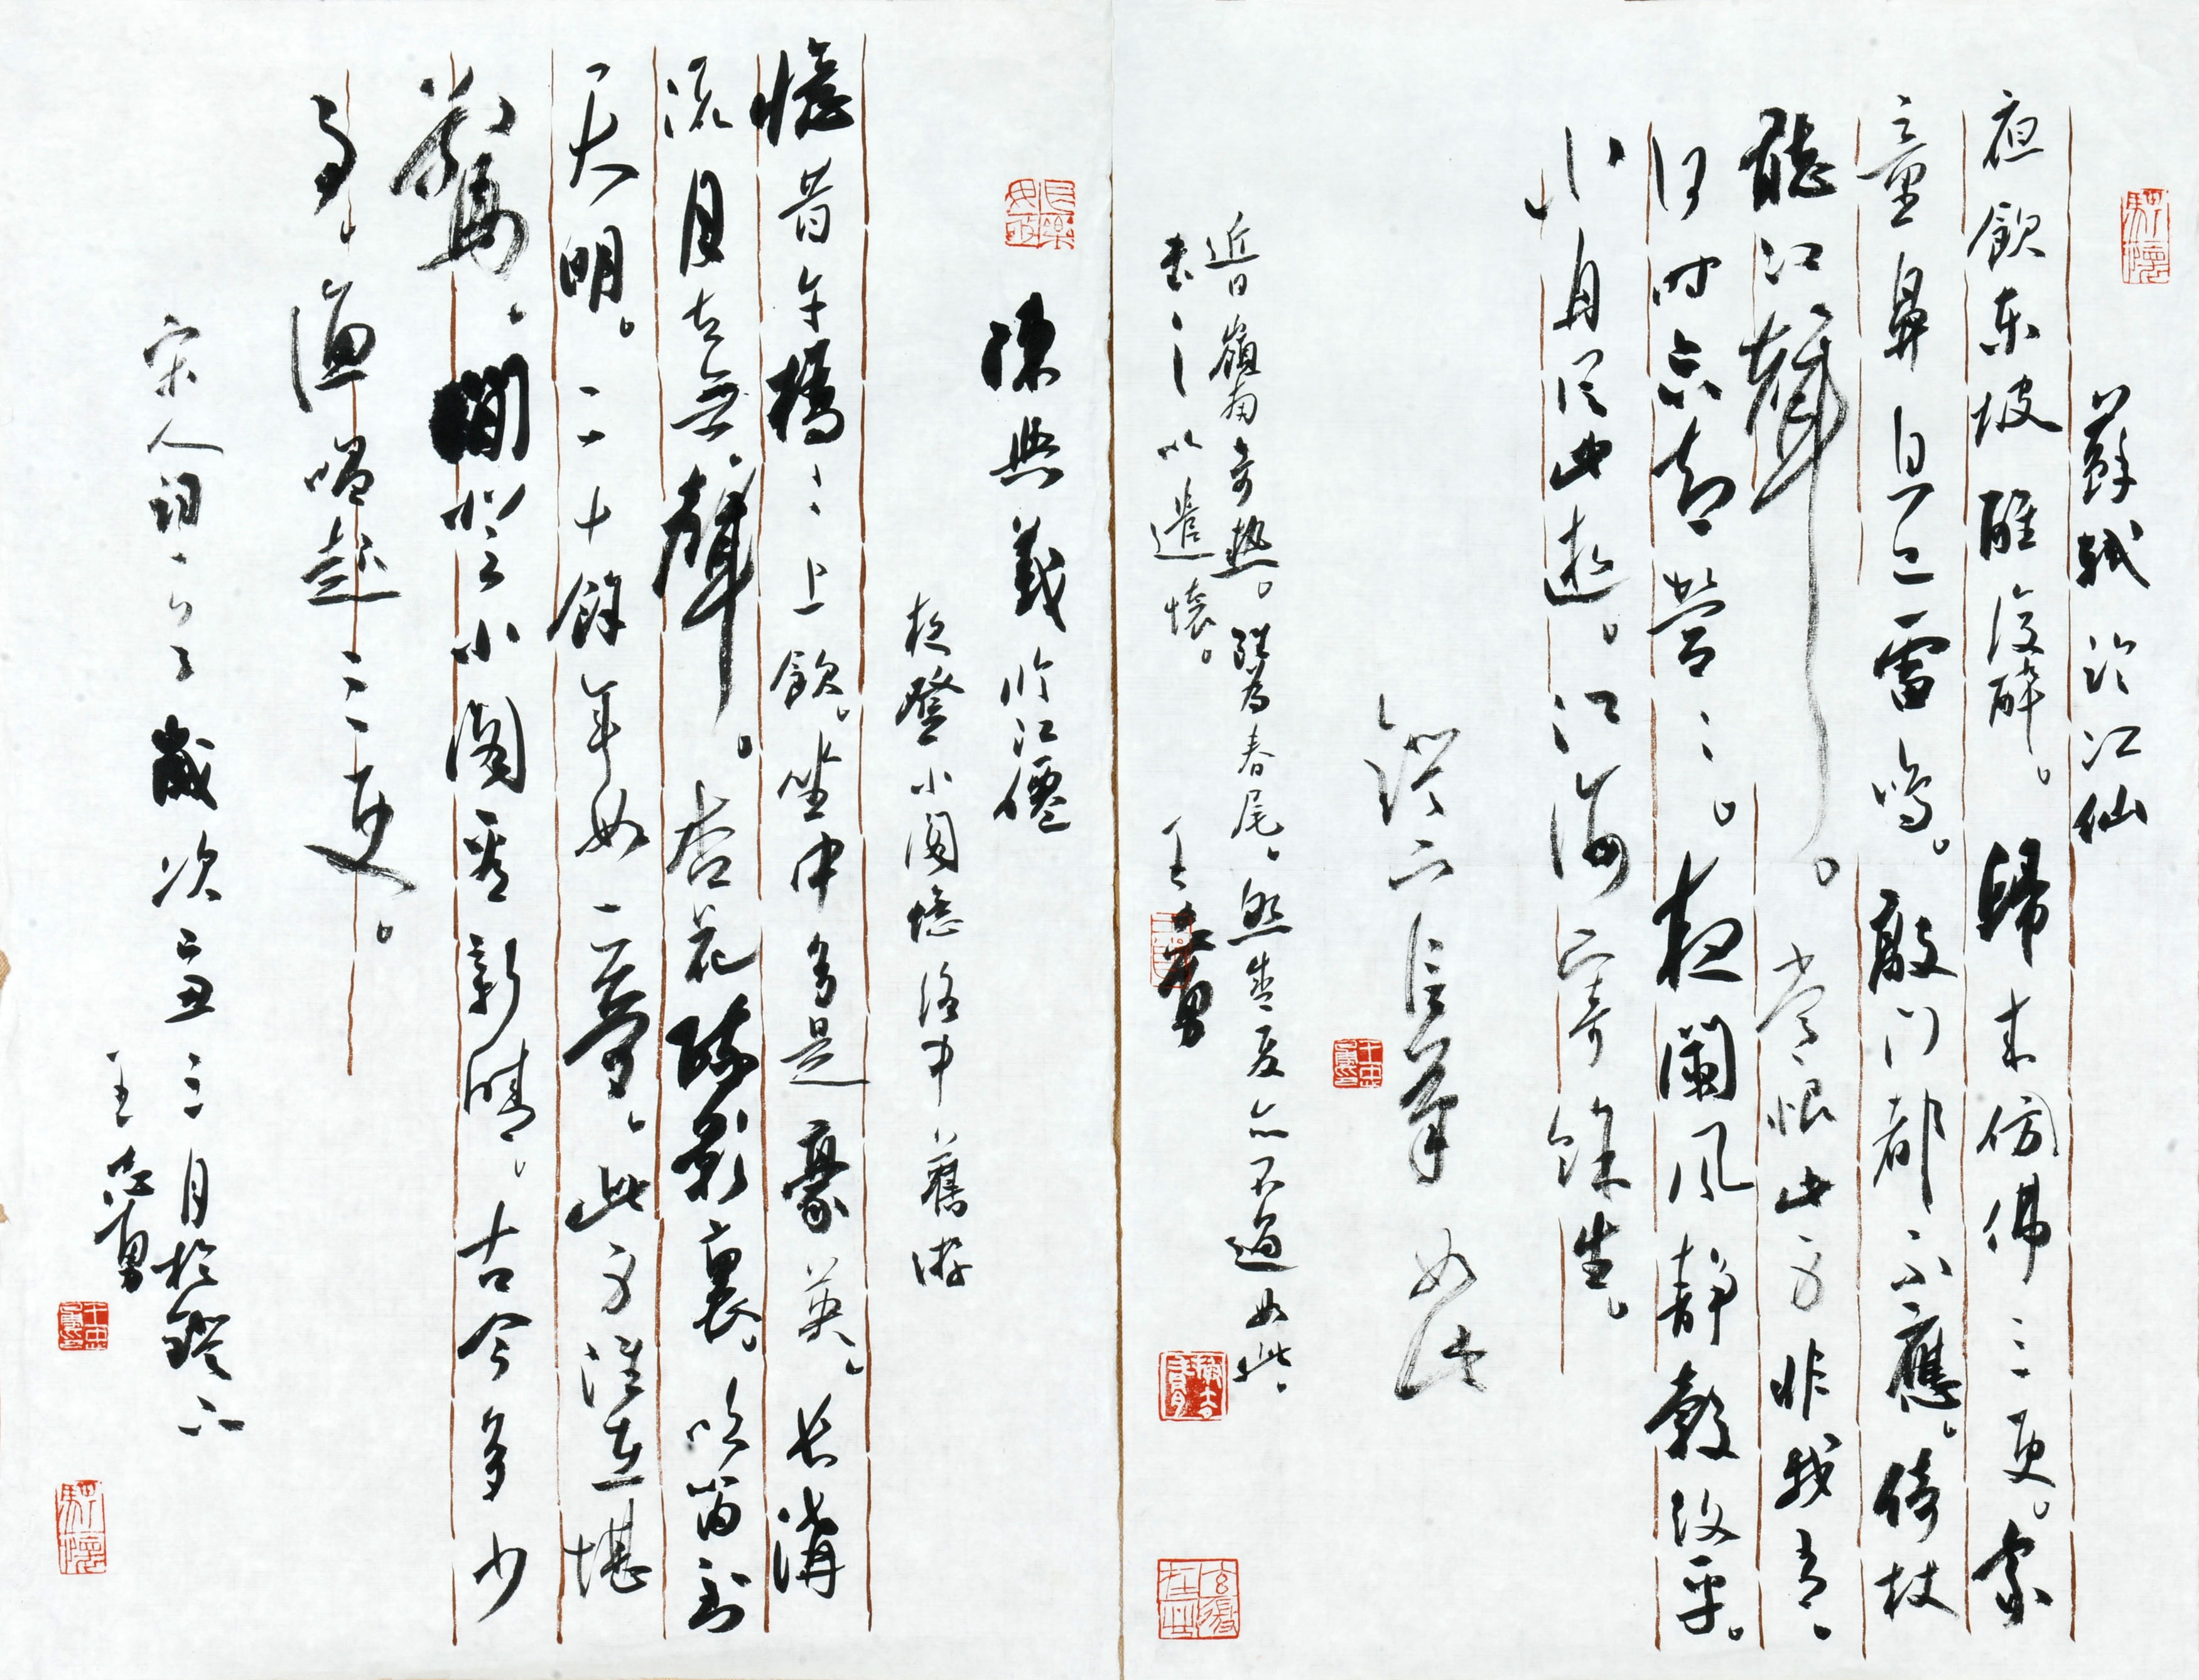 蘇軾 臨江仙
夜飲東坡醒復醉。歸来仿佛三更。家
童鼻息已雷鳴。敲门都不應。倚杖
聽江聲。常恨此身非我有。
何时忘却營〻。夜闌风静縠紋平。
小舟從此逝。江海寄餘生。
鐙下信筆如此
近日嶺南奇熱。雖為春尾。然盛夏亦不過如此。
書之以遣懷。 王志勇
陳與義 臨江僊
夜登小閣憶洛中舊游
憶昔午橋〻上飲。坐中多是豪英。长溝
流月去無聲。杏花疎影裏。吹笛到
天明。二十餘年如一夢。此身雖在堪
驚。閒登小閣看新晴。古今多少
事。漁唱起三更。
宋人詞 歲次丑三月於鐙下
王志勇